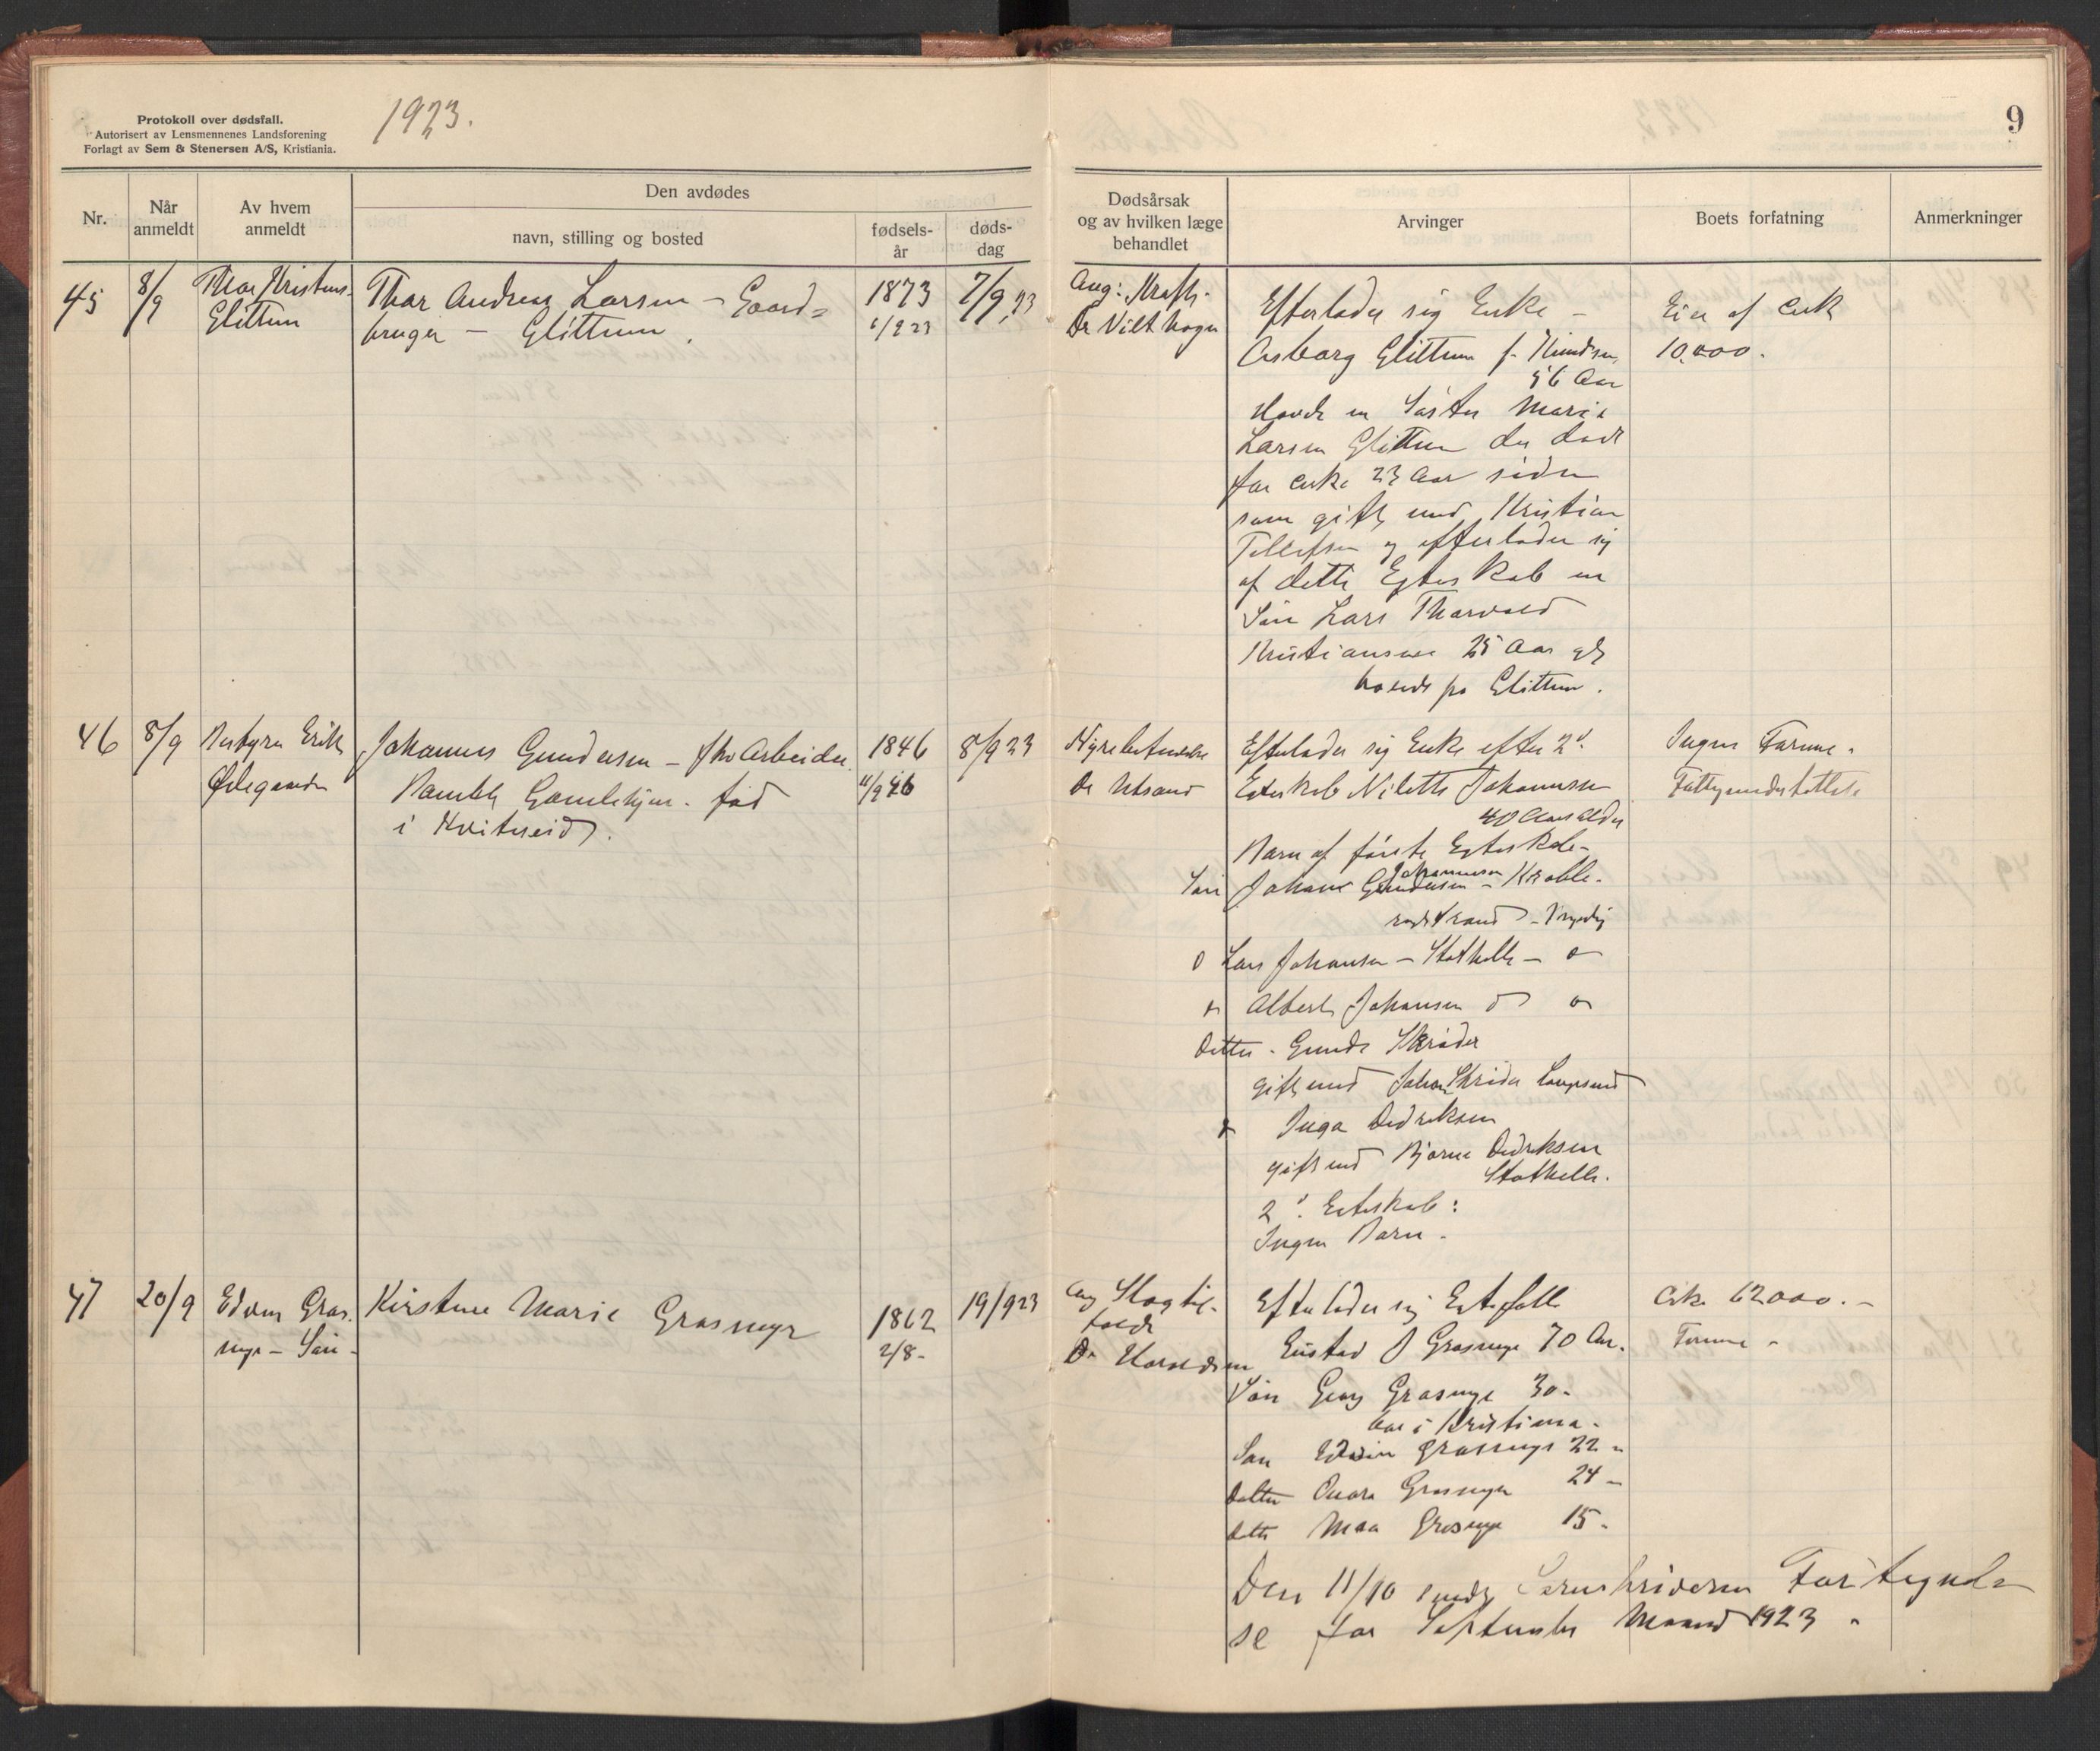 Protokoll over dødsfall.
Autorisert av Lensmennenes Landsforening
Forlagt av Sem & Stenersen A/S, Kristiania.
1923.
9
Nr.
Når anmeldt
Av hvem anmeldt
Den avdødes
navn, stilling og bosted
fødsels-år
døds-dag
Dødsårsak og av hvilken læge behandlet
Arvinger
Boets forfatning
Anmerkninger
45
8/9
Thor Kristens.
Glittum
Thor Andreas Larsen - Gaard=
bruger - Glittum.
1873
7/9 23
Aug: Kræft.
Dr
Efterlader sig Enke -
Glittum f.
56 Aar
Havde en Søster Marie
Larsen Glittum der døde
for cirka 23 Aar siden
som gift med Kristian
Tellefsen og efterlader sig
af dette Egteskab en
Søn Lars Thorvald
Kristiansen 25 Aar gl
boende på Glittum.
Eier af cirk
10.000.
46
8/9
Bestyrer Erik
Ødegaarden
Johannes Gundersen - fhv Arbeider
Bamble Gamlehjem. fød
i Kviteseid.
1846
11/9 46
8/9 23
Nyrebetændelse
Dr Utsand
Efterlader sig Enke efter 2d
Egteskab Nilette Johannesen
40 Aars alder
Barn af første Egteskab-
Søn Johan Gundersen Johannesen - Krable.
rødstrand - Myndig
o Lars Johansen - Stathelle - o
" Albert Johansen do o
Datter - Gunde Skrøder
gift med Johan Skrøder Langesund
" Inga Dedriksen
gift med Bjarne Dedriksen
Stathelle.
2d. Egteskab:
Ingen Barn.
Ingen Formue.
Fattigunderstøttelse
47
20/9
Edvin Gras-
myr - Søn -
Kirstine Marie Grasmyr
1862
2/8-
19/9 23
Aug Slagtil-
fælde
Dr
Efterlader sig Egtefælle
Gustav J Grasmyr 70 Aar.
Søn Georg Grasmyr 30-
bor i Kristiania-
Søn Edvin Grasmyr 22 -
Datter Grasmyr 24 -
Datter Grasmyr 15 -
Cirka 62000.-
Formue -
Den 11/10 sendt Sorenskriveren Fortegnel=
se for September Maaned 1923